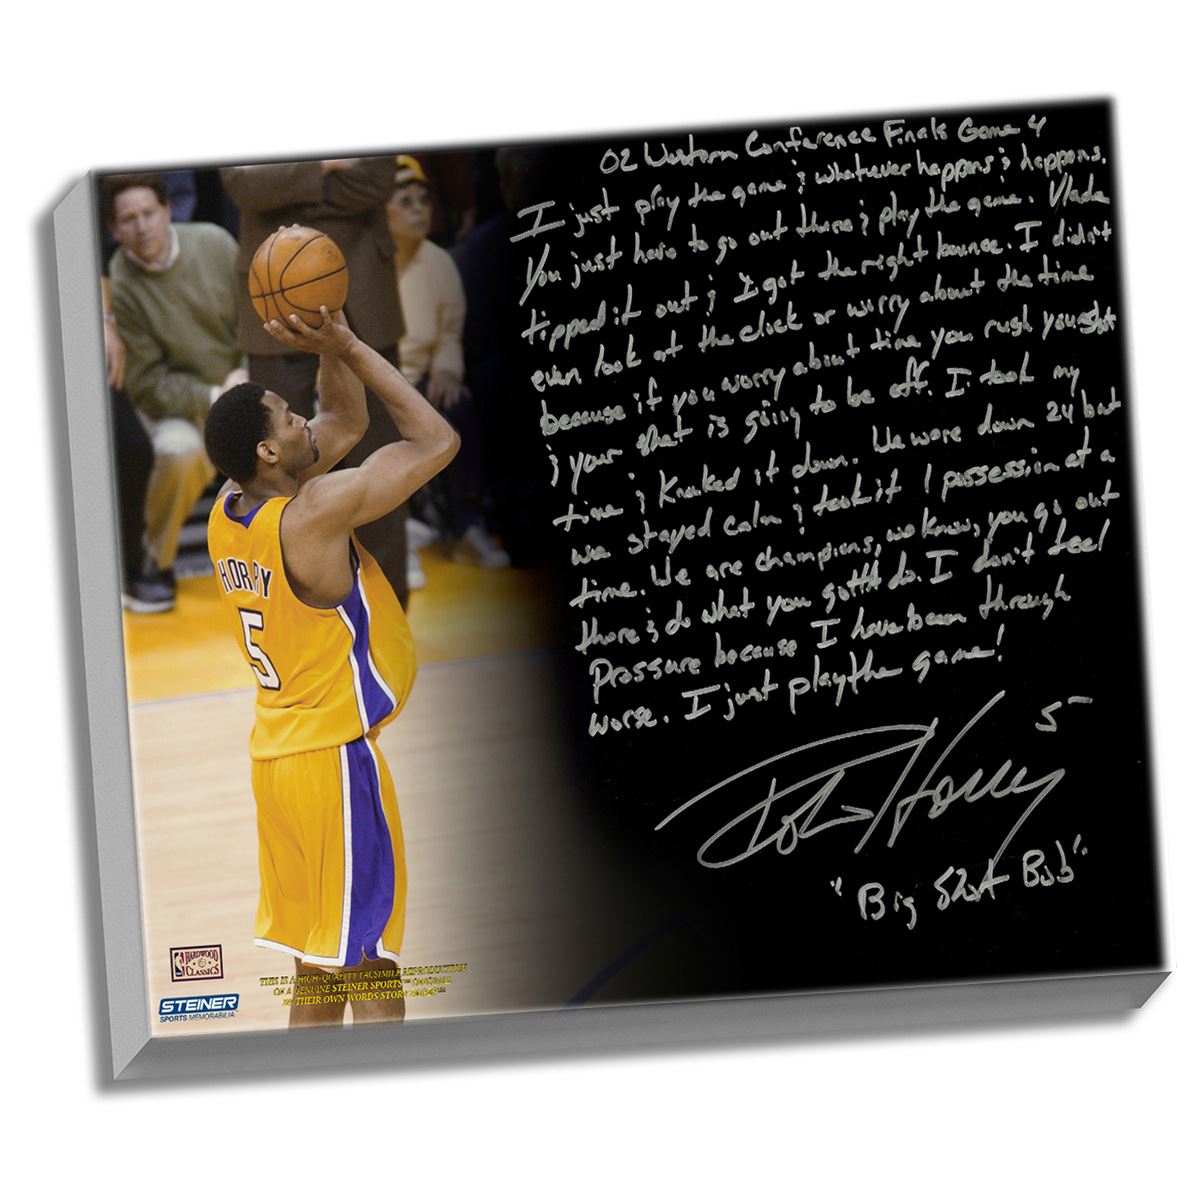 02 Western Conference Finals Game 4
I just play the game & whatever happens & happens.
You just have to go out there & play the game. Vlade
tipped it out & I got the right bounce. I didn't
even look at the clock or worry about the time
because if you worry about time you rush your shot
& your shot is going to be off. I took my
time & knocked it down. We were down 24 but
we stayed calm & took it 1 possession at a
time. We are champions, we know, you go out
there & do what you gotta do. I don't feel
Pressure because I have been through
worse. I just play the game!
Robert Horry 5
"Big Shot Bob"
HORRY
5
HARDWOOD
CLASSICS
STEINER
SPORTS MEMORABILIA
THIS IS A HIGH-QUALITY FACSIMILE REPRODUCTION
OF A GENUINE STEINER SPORTS™ ORIGINAL
IN THEIR OWN WORDS STORY